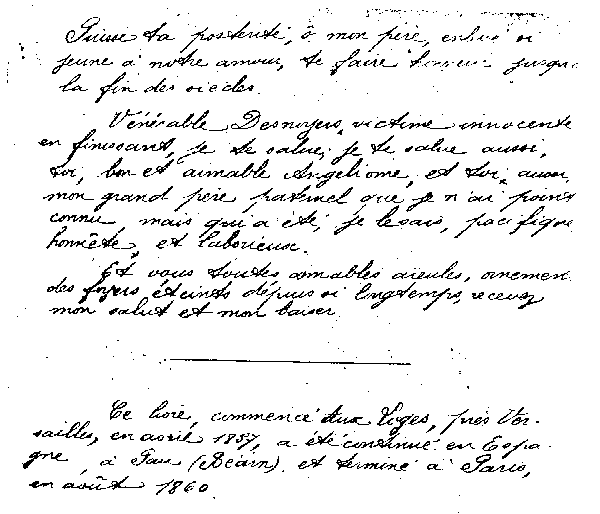 Puisse ta postérité, ô mon père, enlevé si
jeune à notre amour, te faire honneur jusqu'à
la fin des siècles.
Vénérable Desnoyers, victime innocente
en finissant, je te salue; je te salue aussi,
toi, bon et aimable Angeliome, et toi, aussi,
mon grand père paternel que je n'ai point
connu mais qui a été, je le sais, pacifique
honnête, et laborieux.
Et vous toutes aimables aieules, ornemen
des foyers éteints depuis si longtemps, recevez
mon salut et mon baiser.
Ce livre, commencé aux Loges, près Ver-
sailles, en avril 1857, a été continué en Espa-
gne, à Pau (Béarn), et terminé à Paris,
en août 1860.